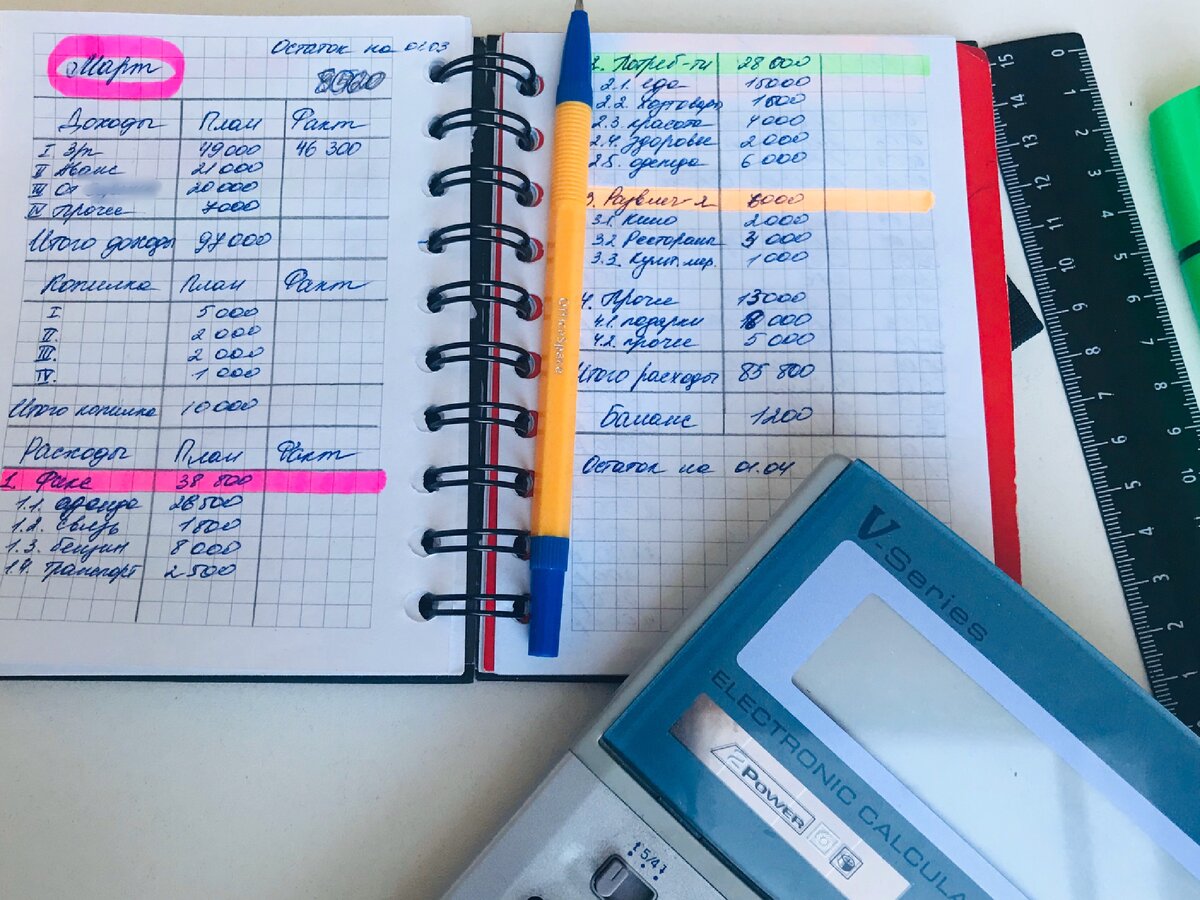 Март Остаток на 01.03
Доходы План Факт
I З/п 49000 46 300
II Аванс 21 000
III От 20 000
IV Прочее 7000
Итого доходы 97 000
Копилка План Факт
I 5 000
II. 2 000
III. 2 000
IV. 1 000
Итого копилка 10 000
Расходы План Факт
1. Фикс 38 800
1.1. аренда 26 500
1.2. связь 1800
1.3. бензин 8 000
1.4. транспорт 2 500
2. Потреб-ти 28 000
2.1. еда 15000
2.2. хозтовары 1000
2.3 красота 4000
2.4. здоровье 2 000
2.5. одежда 6 000
3. Развлеч-я 6000
3.1. Кино 2000
3.2 Рестораны 3 000
3.3. Культ. мер. 1 000
4. Прочее 13000
4.1. подарки 8 000
4.2. прочее 5 000
Итого расходы 85 800
Баланс 1200
Остаток на 01.04
OfficeSpace
15 14 13 12 11 10 9 8 7 6 5 4 3 2
0 1 2 3 4 5 6 7 8 9 10
V-Series
ELECTRONIC CALCULA
2 POWER
5/4